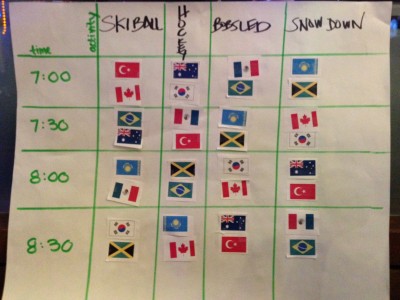 time
activity
SKIBALL
HOCKEY
BOBSLED
SNOW DOWN
7:00
7:30
8:00
8:30